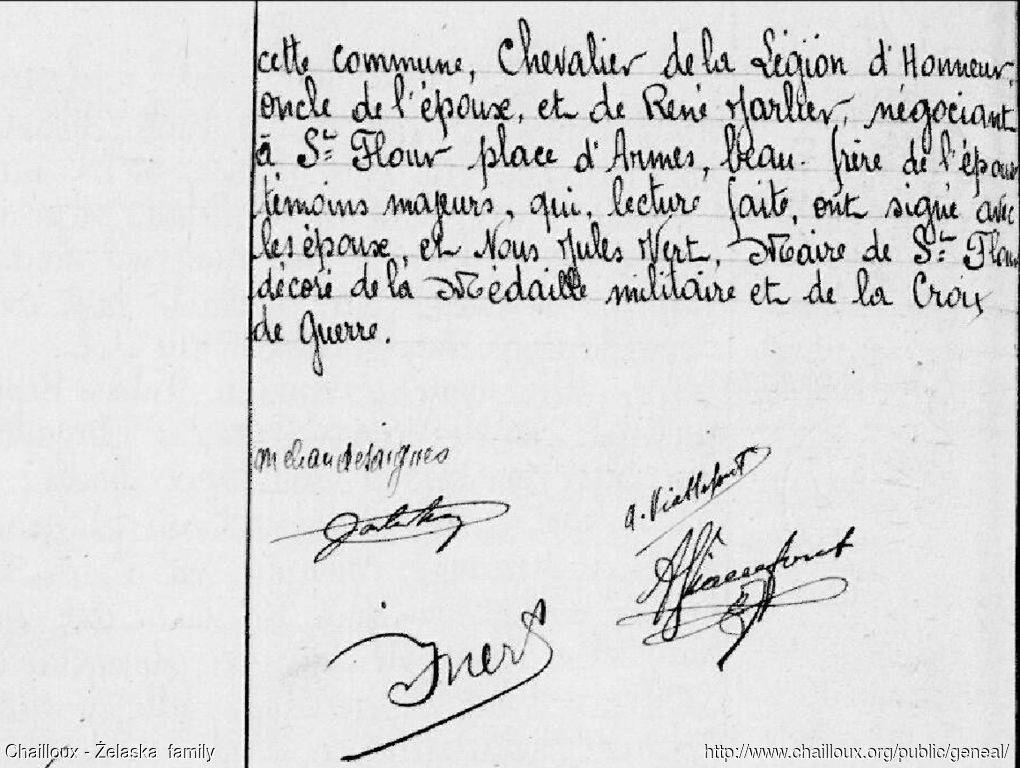 cette commune, Chevalier de la Légion d'Honneur,
oncle de l'épouse, et de René Marlier, négociant
à St Flour place d'Armes, beau-frère de l'époux
témoins majeurs, qui, lecture faite, ont signé avec
les époux, et Nous Jules Vert, Maire de St Flour
décoré de la Médaille militaire et de la Croix
de Guerre.
mchandesaignes
a. Viallefont
JVert
Chailloux - Żelaska family
http://www.chailloux.org/public/geneal/